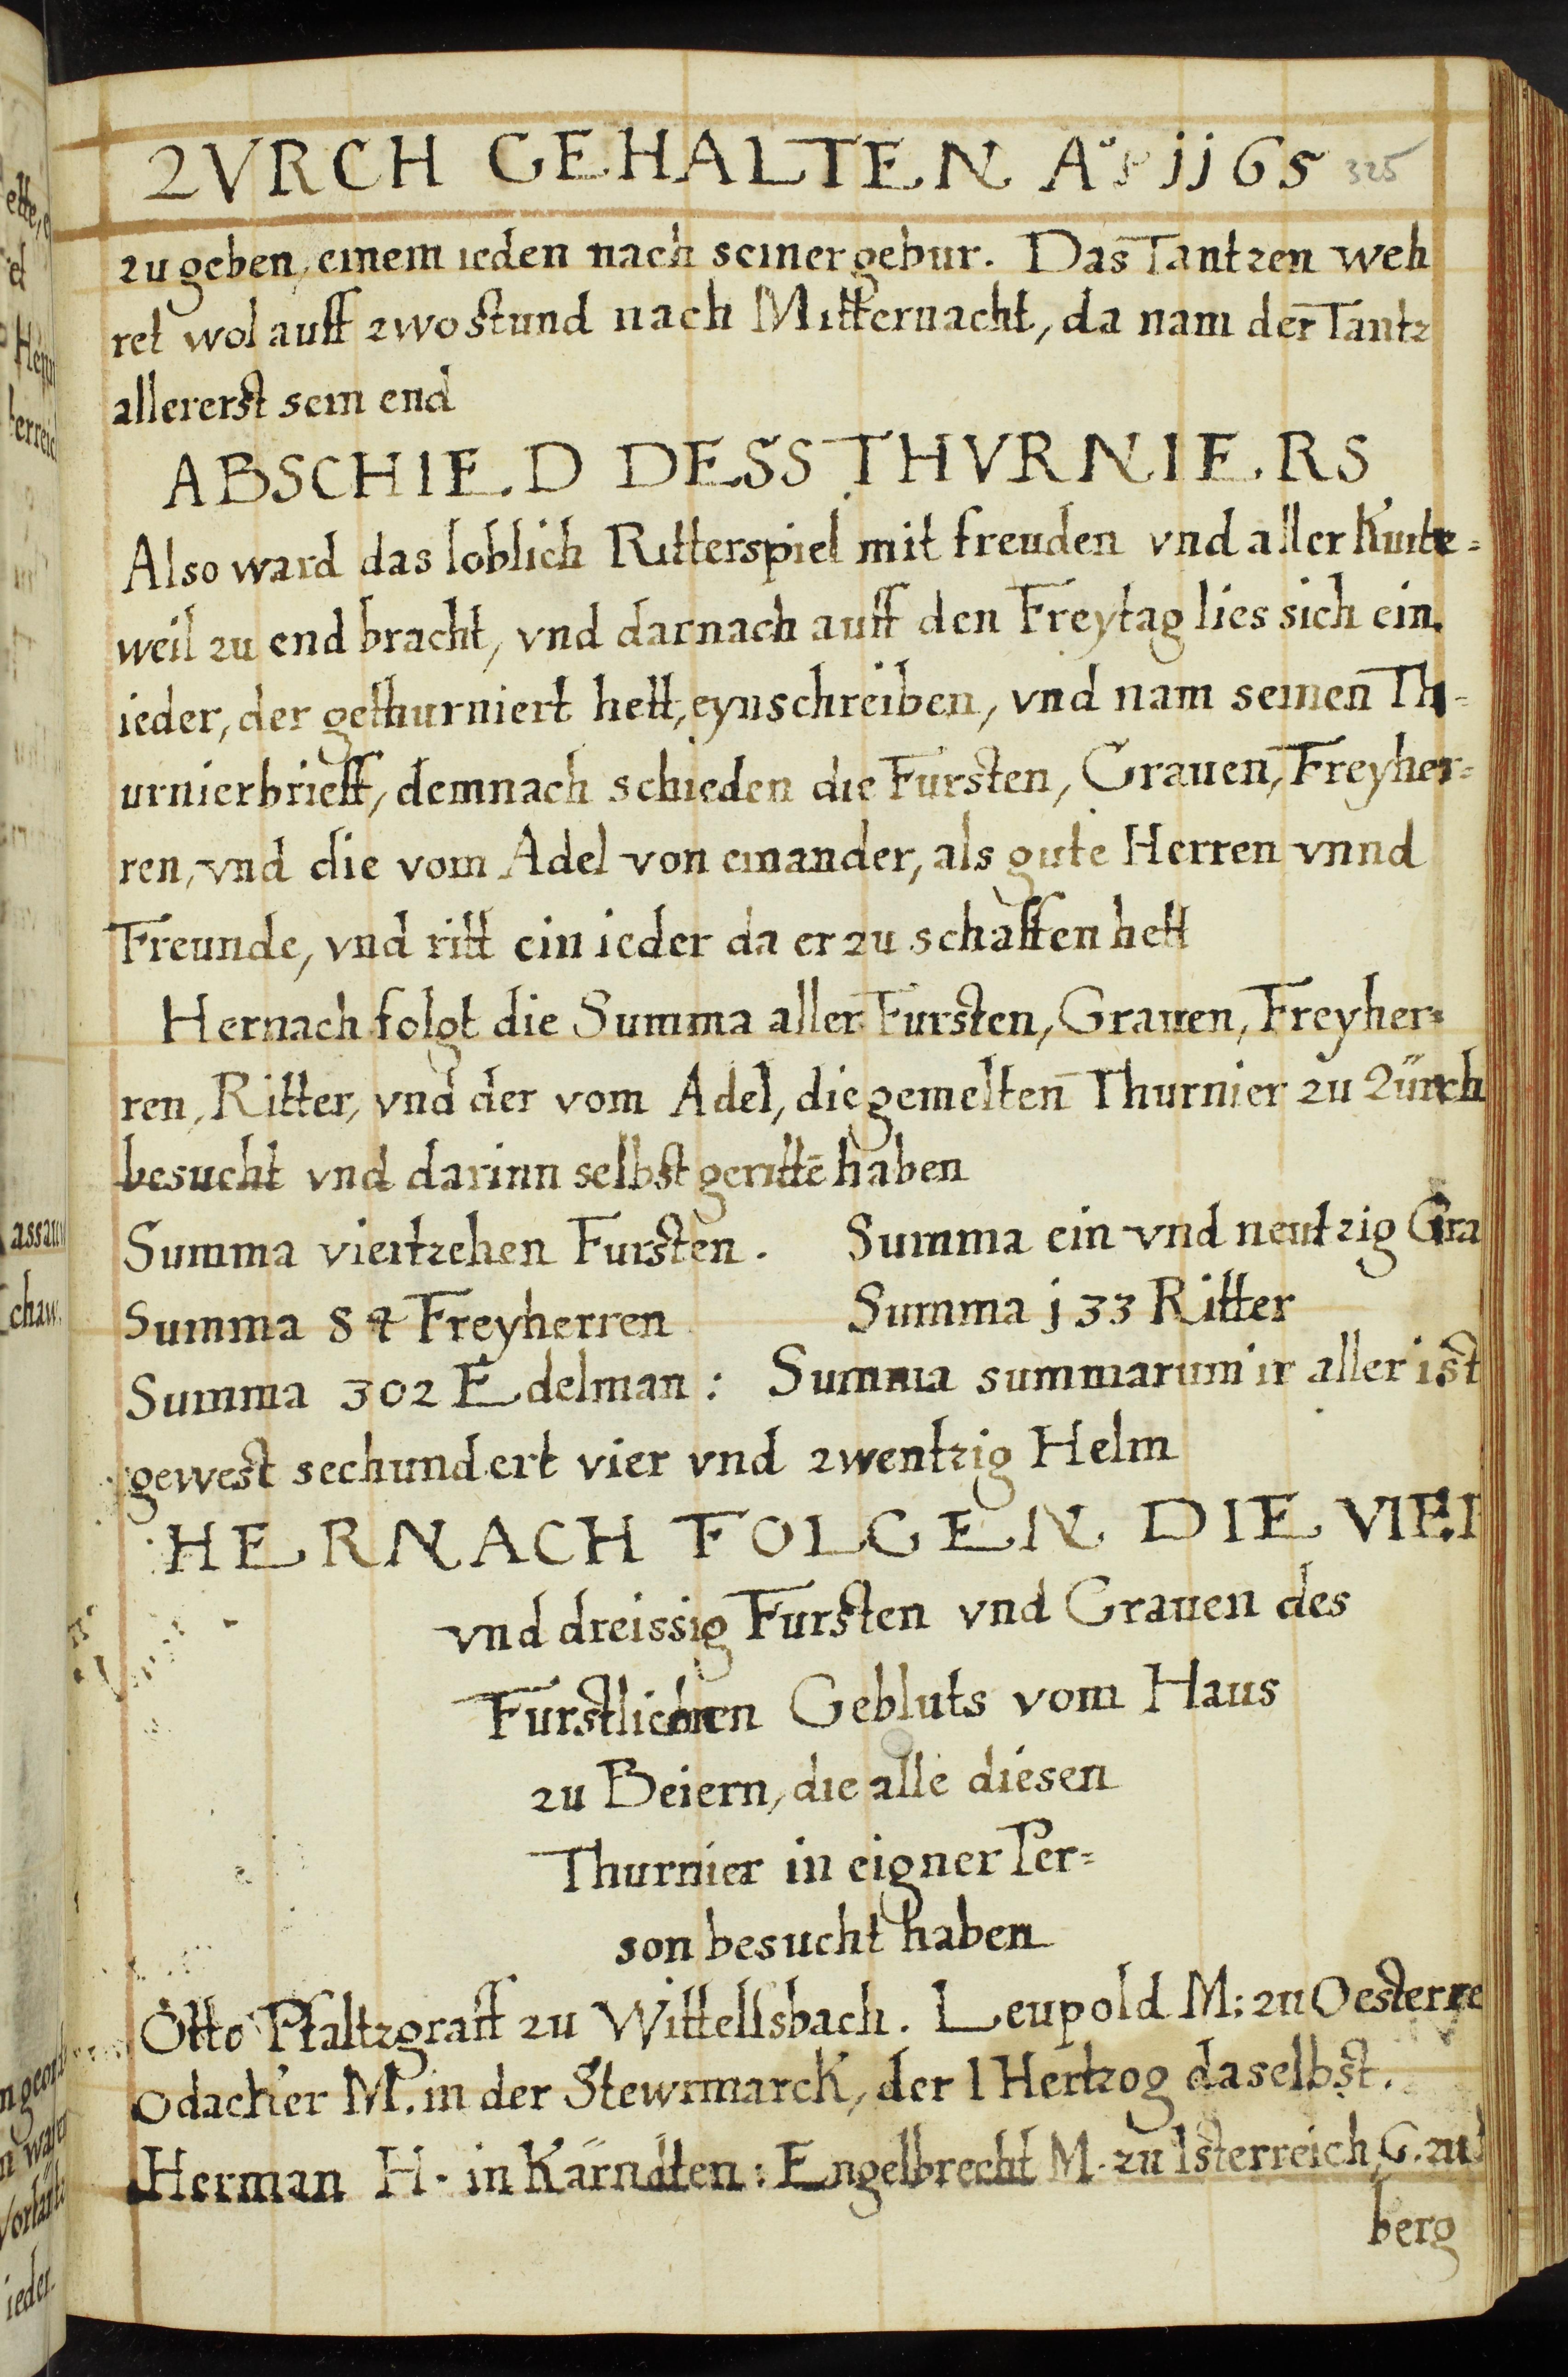 ZVRCH GEHALTEN Aº jj65 325
zu geben, einem ieden nach seiner gebur. Das Tantzen weh
ret wol auff zwo stund nach Mitternacht, da nam der Tantz
allererst sein end
ABSCHIED DESS THVRNIERS
Also ward das loblich Ritterspiel mit freuden vnd aller Kurtz=
weil zu end bracht, vnd darnach auff den Freytag lies sich ein
ieder, der gethurniert hett, eynschreiben, vnd nam seinen Th=
urnierbrieff, demnach schieden die Fursten, Grauen, Freyher=
ren, vnd die vom Adel von einander, als gute Herren vnnd
Freunde, vnd ritt ein ieder da er zu schaffen hett
Hernach folgt die Summa aller Fursten, Grauen, Freyher=
ren, Ritter, vnd der vom Adel, die gemelten Thurnier zu Zürch
besucht vnd darinn selbst gerittē haben
Summa viertzehen Fursten. Summa ein vnd neutzig Gra
Summa 84 Freyherren Summa j33 Ritter
Summa 302 Edelman: Summa summarum ir aller ist
gewest sechundert vier vnd zwentzig Helm
HERNACH FOLGEN DIE VIER
vnd dreissig Fursten vnd Grauen des
Furstlichen Gebluts vom Haus
zu Beiern, die alle diesen
Thurnier in eigner Per=
son besucht haben
Otto Pfaltzgraff zu Wittellsbach. Leupold M: zu Oesterre
Odacher M. in der Stewrmarck, der 1 Hertzog daselbst.
Herman H. in Kärndten: Engelbrecht M. zu Isterreich G. zu
berg